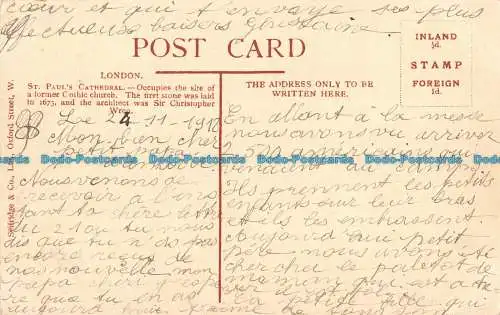 cœur et qui t'envoye ses plus
affectueux baisers Ghislaine
POST CARD
INLAND
½d.
STAMP
FOREIGN
1d.
LONDON.
ST. PAUL'S CATHEDRAL.—Occupies the site of
a former Gothic church. The first stone was laid
in 1675, and the architect was Sir Christopher
Wren.
THE ADDRESS ONLY TO BE
WRITTEN HERE.
Selfridge & Co., Ltd., Oxford Street, W.
Le 24-11-191
Mon bien cher
petit papa
Nous venons de
recevoir à l'ins
tant ta chère lettre
du 21 où tu nous
dis que tu n'as pas
encore reçu de
nos nouvelle mon
papa
re que tu en as
aujourd
En allant à la messe
nous avons vu arriver
500 américains qui
venaient au camp
Ils prennent les petits
enfants sur leur bras
et ils les embrassent.
Aujourd'hui petit
père nous avons été
chercher le paletot de
maman qui est à
la petite fille qui
Dodo-Postcards Dodo-Postcards Dodo-Postcards Dodo-Postcards
Dodo-Postcards Dodo-Postcards Dodo-Postcards Dodo-Postcards